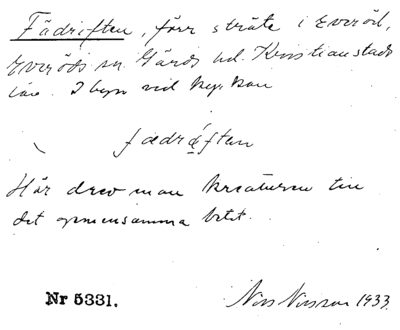 Fädriften, förr sträte i Everöd,
Everöds sn. Gärds hd. Kristianstads
län. I byn vid kyrkan
fædri̯ften
Här drev man kreaturen till
det gemensamma betet.
Nr 5331.
Nils Nilsson 1933.